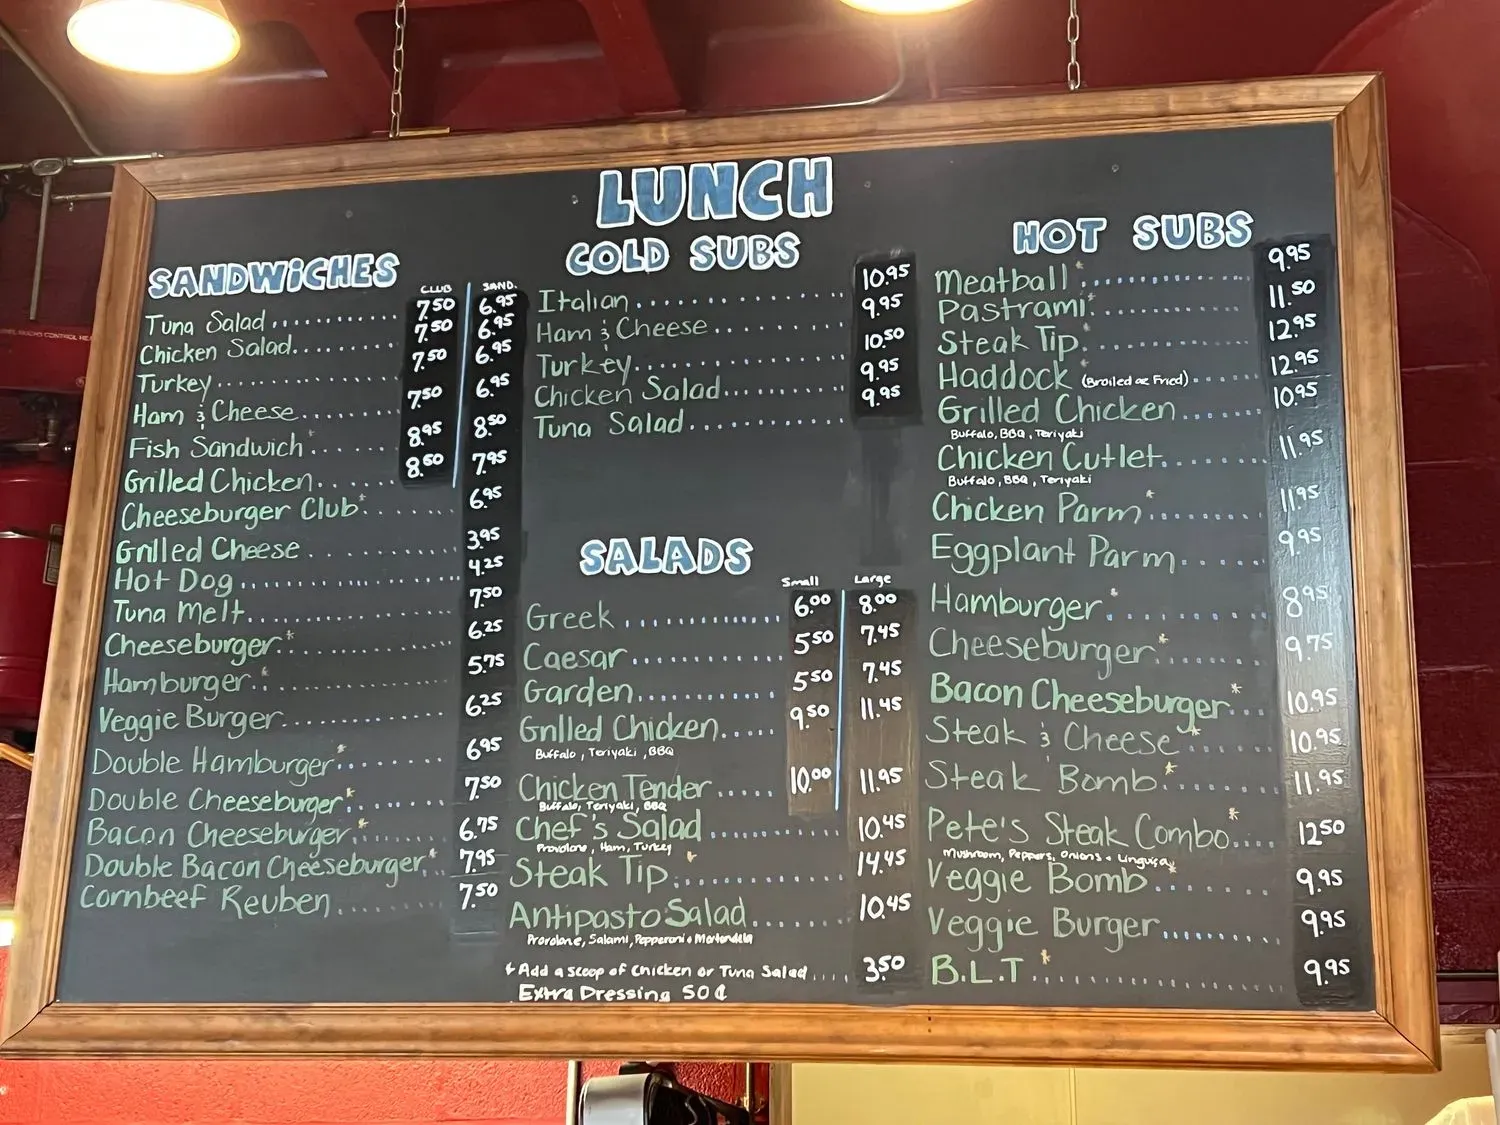 LUNCH
SANDWICHES
CLUB SAND.
Tuna Salad 7.50 6.95
Chicken Salad 7.50 6.95
Turkey 7.50 6.95
Ham & Cheese 7.50 6.95
Fish Sandwich* 8.95 8.50
Grilled Chicken 8.50 7.95
Cheeseburger Club* 6.95
Grilled Cheese 3.95
Hot Dog 4.25
Tuna Melt 7.50
Cheeseburger* 6.25
Hamburger* 5.75
Veggie Burger 6.25
Double Hamburger* 6.95
Double Cheeseburger* 7.50
Bacon Cheeseburger* 6.75
Double Bacon Cheeseburger* 7.95
Cornbeef Reuben 7.50
COLD SUBS
Italian 10.95
Ham & Cheese 9.95
Turkey 10.50
Chicken Salad 9.95
Tuna Salad 9.95
SALADS
Small Large
Greek 6.00 8.00
Caesar 5.50 7.45
Garden 5.50 7.45
Grilled Chicken 9.50 11.45
Buffalo, Teriyaki, BBQ
Chicken Tender 10.00 11.95
Buffalo, Teriyaki, BBQ
Chef's Salad 10.45
Provolone, Ham, Turkey
Steak Tip* 14.45
Antipasto Salad 10.45
Provolone, Salami, Pepperoni & Mortandella
Add a scoop of Chicken or Tuna Salad 3.50
Extra Dressing 50¢
HOT SUBS
Meatball* 9.95
Pastrami* 11.50
Steak Tip* 12.95
Haddock* (Broiled or Fried) 12.95
Grilled Chicken 10.95
Buffalo, BBQ, Teriyaki
Chicken Cutlet 11.95
Buffalo, BBQ, Teriyaki
Chicken Parm* 11.95
Eggplant Parm 9.95
Hamburger* 8.95
Cheeseburger* 9.75
Bacon Cheeseburger* 10.95
Steak & Cheese* 10.95
Steak Bomb* 11.95
Pete's Steak Combo* 12.50
Mushroom, Peppers, Onions & Linguiça
Veggie Bomb* 9.95
Veggie Burger 9.95
B.L.T* 9.95